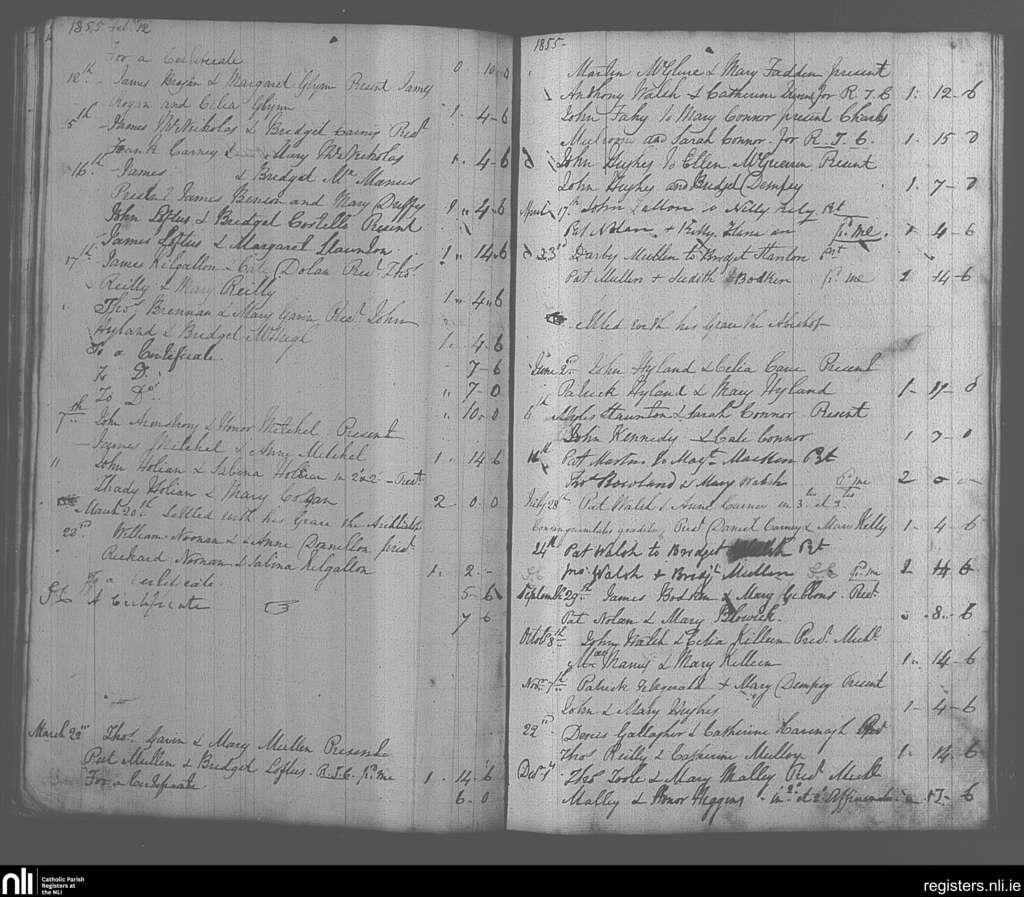 1855 Feb. 12
For a Certificate 0 . 10 . 0
12th - James Hogan & Margaret Glynn Present James
Hogan and Celia Glynn 1 . 4 - 6
5th - James McNicholas & Bridget Carney Prest
Frank Carney & Mary McNicholas 1 . 4 - 6
16th - James & Bridget McManus
Present James Benson and Mary Duffey 1 " 4 - 6
John Loftus & Bridget Costello Present
James Loftus & Margaret Staunton 1 " 14 " 6
17th James Kilgallon & Cate Dolan Prest Thos.
Reilly & Mary Reilly 1 " 4 " 6
Thos. Brennan & Mary Gavin Prest John
Hyland & Bridget McHugh 1 . 4 - 6
To a Certificate - 7 - 6
To Do. " 7 - 0
To Do. " 10 - 0
7th John Armstrong & Honor Mitchel Present
James Mitchel & Anne Mitchel 1 . 14 6
11 John Holian & Sabina Holian in 2 & 2 - Prest
Thady Holian & Mary Cogan 2 - 0 . 0
March 20th Settled with his Grace the Archbishop
22d William Noonan & Anne Donellon prest
Richard Noonan & Sabina Kilgallon 1 . 2 . -
To a Certificate 5 - 6
A Certificate 7 6
March 22nd Thos. Gavin & Mary Mullen Present
Pat Mullen & Bridget Loftus . R.T.C. pr. me 1 . 14 . 6
For a Certificate 6 - 0
1855 -
Martin McGlure & Mary Fadden present
Anthony Walsh & Catherine for R T C 1 : 12 - 6
John Fahy to Mary Connor present Charls
Mulrooney and Sarah Connor . for R . T . C . 1 . 15 0
John Hughes to Ellen Present
John Hughes and Bridget Dempsey 1 . 7 - 0
April 17th John to Nelly Pt
Pat Nolan + Kitty pr. me . 1 - 4 - 6
23d Darby Mullen to Bridget Hanlon Prt
Pat Mullen + Judith Bodken pr. me 2 14 - 6
settled with his Grace the Abishop
June 2nd John Hyland & Celia Cane Present
Patrick Hyland & Mary Hyland 1 - 17 - 0
6th Myles Staunton & Sarah Connor Present
John Kennedy - & Cate Connor 1 7 - 0
16th Pat Martin to Margt. Mackin Pt
Thos Bowland & Mary Walsh pr. me 2 0 -
July 28th Pat Walsh & Anne Carney in 3th et 3this
Consanguinitatis gradibus Prest Daniel Carney & Mary Kelly 1 - 4 - 6
24th Pat Walsh to Bridget Walsh Pt
Jno. Walsh + Bridgt Mullen pr. me 2 4 6
Septemb. 29th James Bodkin & Mary Gibbons Prest.
Pat Nolan & Mary Blowick . 8 . 6
Octob. 8th John Walsh & Celia Killeen Prest. Michl
MacManus & Mary Killeen 1 " 14 - 6
Novr. 7th Patrick Fitzgerald + Mary Dempsey Present
John & Mary Hughes 1 - 4 - 6
22nd Denis Gallagher & Catherine Kavenagh Prest
Thos Reilly & Catherine Mulloy 1 . 14 - 6
Decr. 1st Thos. Toole & Mary Malley Prest. Michl
Malley & Honor Higgins - in 2o et 2o Affinitatis 17 - 6
nli
Catholic Parish
Registers at
the NLI
registers.nli.ie